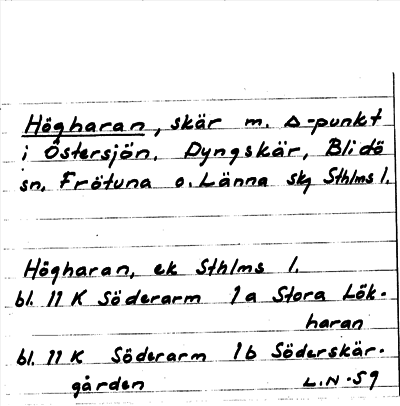 Högharan, skär m. Δ-punkt
i Östersjön. Dyngskär, Blidö
sn, Frötuna o. Länna skg Sthlms l.
Högharan, ek Sthlms l.
bl. 11 K Söderarm 1a Stora Lök-
haran
bl. 11 K Söderarm 1b Söderskär-
gården L.N-59